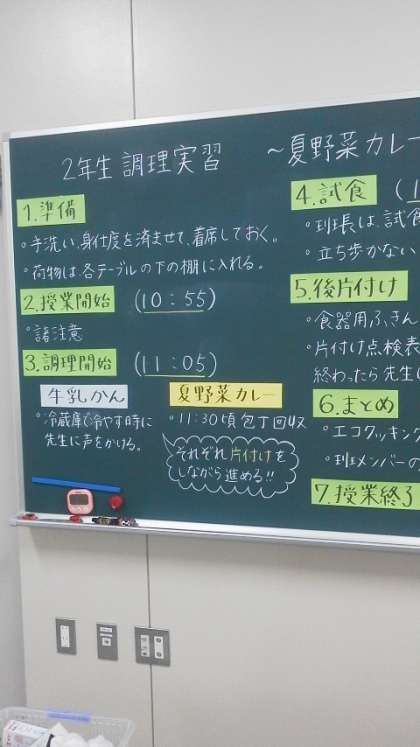 2年生 調理実習 ～夏野菜カレー
1.準備
○手洗い、身仕度を済ませて、着席しておく。
○荷物は各テーブルの下の棚に入れる。
2.授業開始 (10:55)
○諸注意
3.調理開始 (11:05)
牛乳かん
○冷蔵庫で冷やす時に
先生に声をかける。
夏野菜カレー
○11:30頃包丁回収
それぞれ片付けを
しながら進める!!
4.試食 (1
○班長は、試食
○立ち歩かない
5.後片付け
○食器用ふきん
○片付け点検表
終わったら先生に
6.まとめ
○エコクッキング
○班メンバーの
7.授業終了